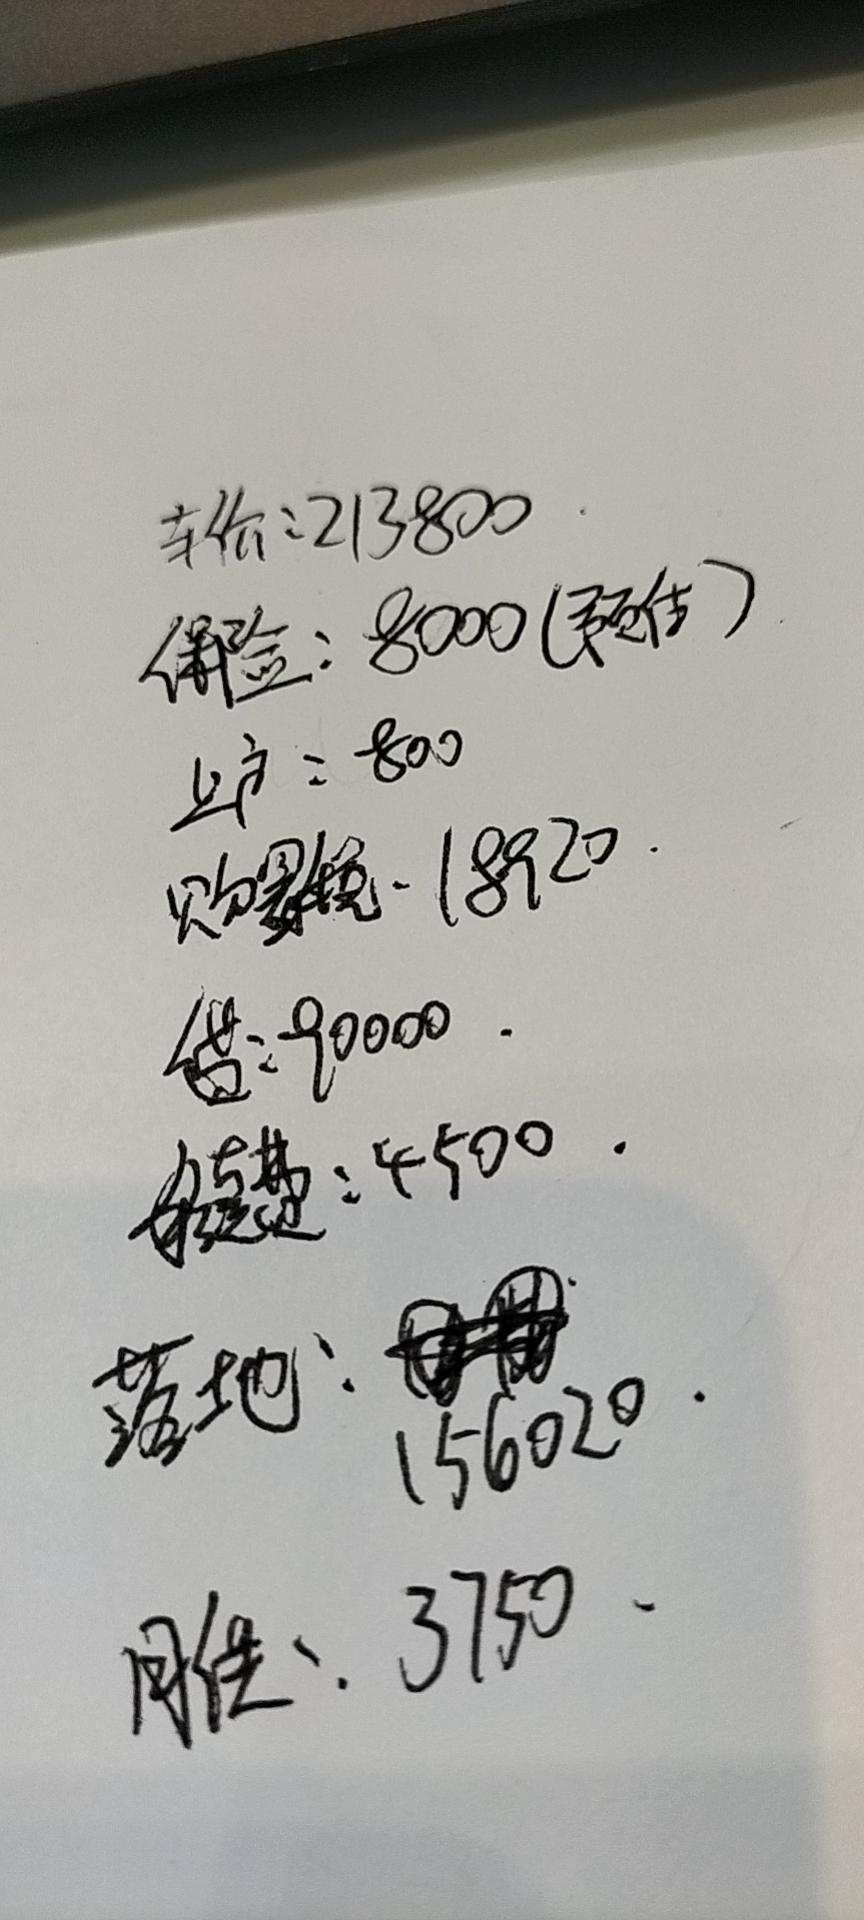 车价:213800
保险:8000(预估)
上户:800
购置税-18920
借:90000
:4500
落地:
156020
月供:3750